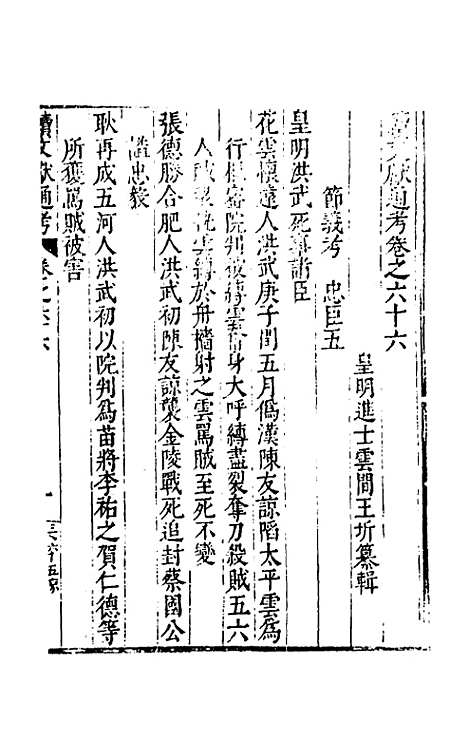 續文獻通考卷之六十六
皇明進士雲間王圻纂輯
節義考　忠臣五
皇明洪武死事諸臣
花雲懷遠人洪武庚子閏五月僞漢陳友諒陷太平雲爲
行樞密院判被縛雲奮身大呼縛盡裂奪刀殺賊五六
人賊縛雲於舟檣射之雲罵賊至死不變
張德勝合肥人洪武初陳友諒襲金陵戰死追封蔡國公
謚忠毅
耿再成五河人洪武初以院判爲苗將李祐之賀仁德等
所獲罵賊被害
續文獻通考
卷之六十六
一